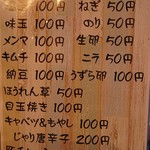 100円 ねぎ 50円
味玉 100円 のり 50円
メンマ 100円 生卵 50円
キムチ 100円 ニラ 50円
納豆 100円 うずら卵 100円
ほうれん草 50円
目玉焼き 100円
キャベツ&もやし 100円
じゃり唐辛子 200円